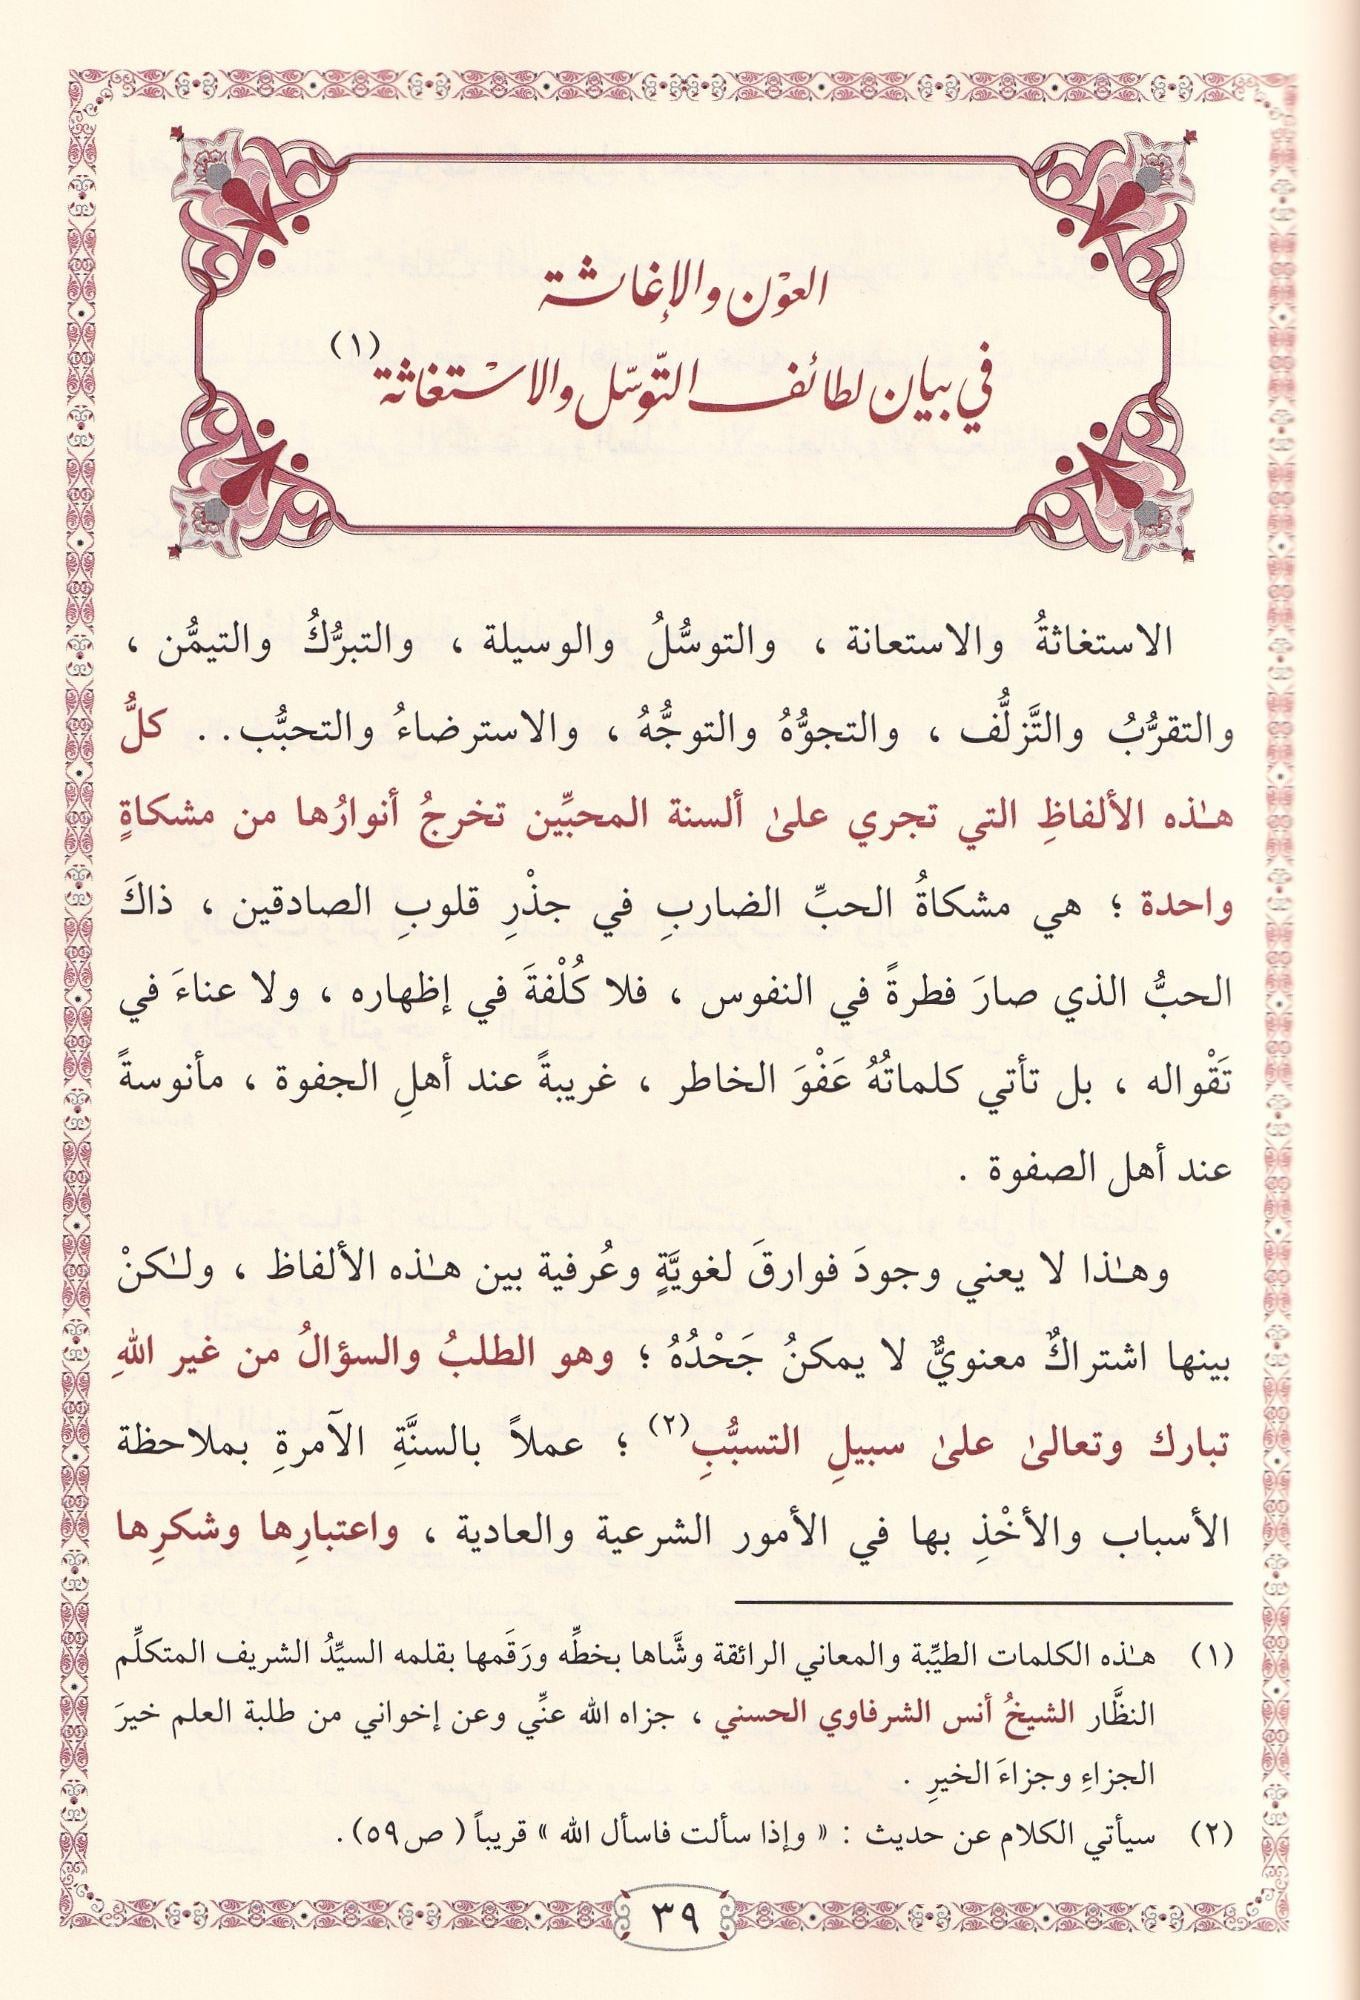 العوْن والإغاثة
في بيان لطائف التوّسل والاسْتغاثة(١)
الاستغاثةُ والاستعانة ، والتوسُّلُ والوسيلة ، والتبرُّكُ والتيمُّن ،
والتقرُّبُ والتَّزلُّف ، والتجوُّهُ والتوجُّهُ ، والاسترضاءُ والتحبُّب.. كلُّ
هـٰذه الألفاظِ التي تجري علىٰ ألسنة المحبِّين تخرجُ أنوارُها من مشكاةٍ
واحدة ؛ هي مشكاةُ الحبِّ الضاربِ في جذْرِ قلوبِ الصادقين ، ذاكَ
الحبُّ الذي صارَ فطرةً في النفوس ، فلا كُلْفةَ في إظهاره ، ولا عناءَ في
تَقْواله ، بل تأتي كلماتُهُ عَفْوَ الخاطر ، غريبةً عند أهلِ الجفوة ، مأنوسةً
عند أهل الصفوة .
وهـٰذا لا يعني وجودَ فوارقَ لغويَّةٍ وعُرفية بين هـٰذه الألفاظ ، ولـٰكنْ
بينها اشتراكٌ معنويٌّ لا يمكنُ جَحْدُهُ ؛ وهو الطلبُ والسؤالُ من غير اللهِ
تبارك وتعالىٰ علىٰ سبيلِ التسبُّبِ(٢) ؛ عملاً بالسنَّةِ الآمرةِ بملاحظة
الأسباب والأخْذِ بها في الأمور الشرعية والعادية ، واعتبارِها وشكرِها
(١) هـٰذه الكلمات الطيِّبة والمعاني الرائقة وشَّاها بخطِّه ورَقَمها بقلمه السيِّدُ الشريف المتكلِّم
النظَّار الشيخُ أنس الشرفاوي الحسني ، جزاه الله عنِّي وعن إخواني من طلبة العلم خيرَ
الجزاءِ وجزاءَ الخيرِ .
(٢) سيأتي الكلام عن حديث : « وإذا سألت فاسأل الله » قريباً ( ص٥٩).
٣٩